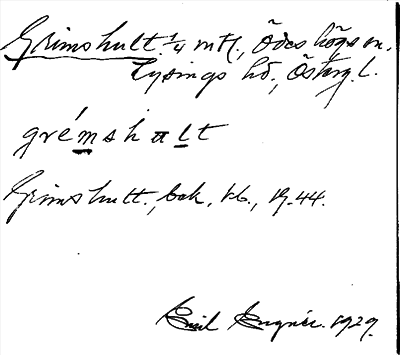 Grimshult. 1/4 mtl., Ödeshögs sn.
Lysings hd., Österg. l.
grémshult
Grimshult., bok. kb., 19.44.
Emil Engnér. 1929.